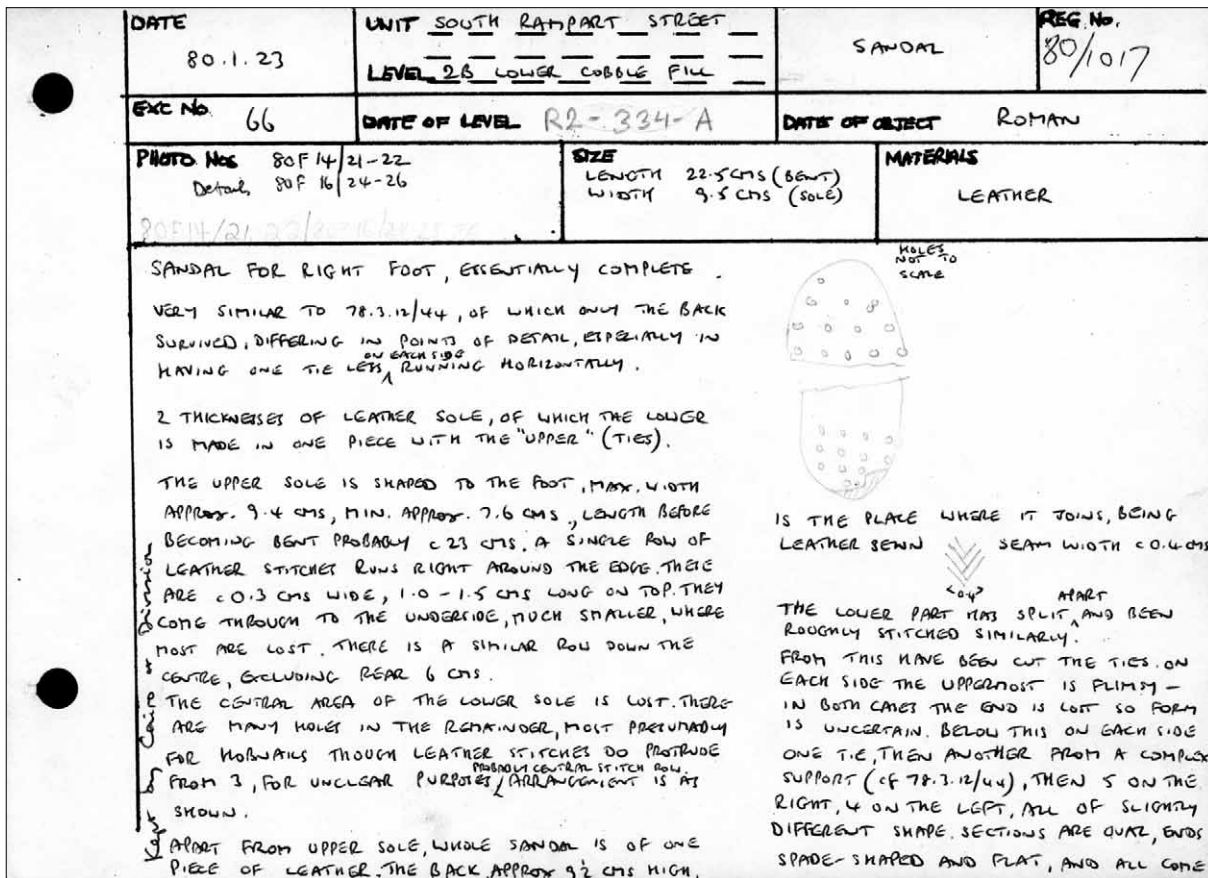 DATE
80.1.23
UNIT SOUTH RAMPART STREET
LEVEL 2B LOWER COBBLE FILL
SANDAL
REG. No.
80/1017
EXC No. 66
DATE OF LEVEL R2-334-A
DATE OF OBJECT ROMAN
PHOTO Nos 80F14/21-22
Details 80F 16/24-26
SIZE
LENGTH 22.5 CMS (BENT)
WIDTH 9.5 CMS (SOLE)
MATERIALS
LEATHER
SANDAL FOR RIGHT FOOT, ESSENTIALLY COMPLETE.
VERY SIMILAR TO 78.3.12/44, OF WHICH ONLY THE BACK
SURVIVED, DIFFERING IN POINTS OF DETAIL, ESPECIALLY IN
HAVING ONE TIE LESS ON EACH SIDE RUNNING HORIZONTALLY.
2 THICKNESSES OF LEATHER SOLE, OF WHICH THE LOWER
IS MADE IN ONE PIECE WITH THE "UPPER" (TIES).
THE UPPER SOLE IS SHAPED TO THE FOOT, MAX. WIDTH
APPROX. 9.4 CMS, MIN. APPROX. 7.6 CMS, LENGTH BEFORE
BECOMING BENT PROBABLY c 23 CMS. A SINGLE ROW OF
LEATHER STITCHES RUNS RIGHT AROUND THE EDGE. THESE
ARE c 0.3 CMS WIDE, 1.0 - 1.5 CMS LONG ON TOP. THEY
COME THROUGH TO THE UNDERSIDE, MUCH SMALLER, WHERE
MOST ARE LOST. THERE IS A SIMILAR ROW DOWN THE
CENTRE, EXCLUDING REAR 6 CMS.
THE CENTRAL AREA OF THE LOWER SOLE IS LOST. THERE
ARE MANY HOLES IN THE REMAINDER, MOST PRESUMABLY
FOR HOBNAILS THOUGH LEATHER STITCHES DO PROTRUDE
FROM 3, FOR UNCLEAR PURPOSES, PROBABLY CENTRAL STITCH ROW. ARRANGEMENT IS AS
SHOWN.
APART FROM UPPER SOLE, WHOLE SANDAL IS OF ONE
PIECE OF LEATHER. THE BACK, APPROX 9½ CMS HIGH,
Kept by Cairo Division
HOLES
NOT TO
SCALE
IS THE PLACE WHERE IT JOINS, BEING
LEATHER SEWN SEAM WIDTH c 0.4 CMS
<0.4>
THE LOWER PART HAS SPLIT APART AND BEEN
ROUGHLY STITCHED SIMILARLY.
FROM THIS HAVE BEEN CUT THE TIES. ON
EACH SIDE THE UPPERMOST IS FLIMSY -
IN BOTH CASES THE END IS LOST SO FORM
IS UNCERTAIN. BELOW THIS ON EACH SIDE
ONE TIE, THEN ANOTHER FROM A COMPLEX
SUPPORT (cf 78.3.12/44), THEN 5 ON THE
RIGHT, 4 ON THE LEFT, ALL OF SLIGHTLY
DIFFERENT SHAPE. SECTIONS ARE OVAL, ENDS
SPADE-SHAPED AND FLAT, AND ALL COME